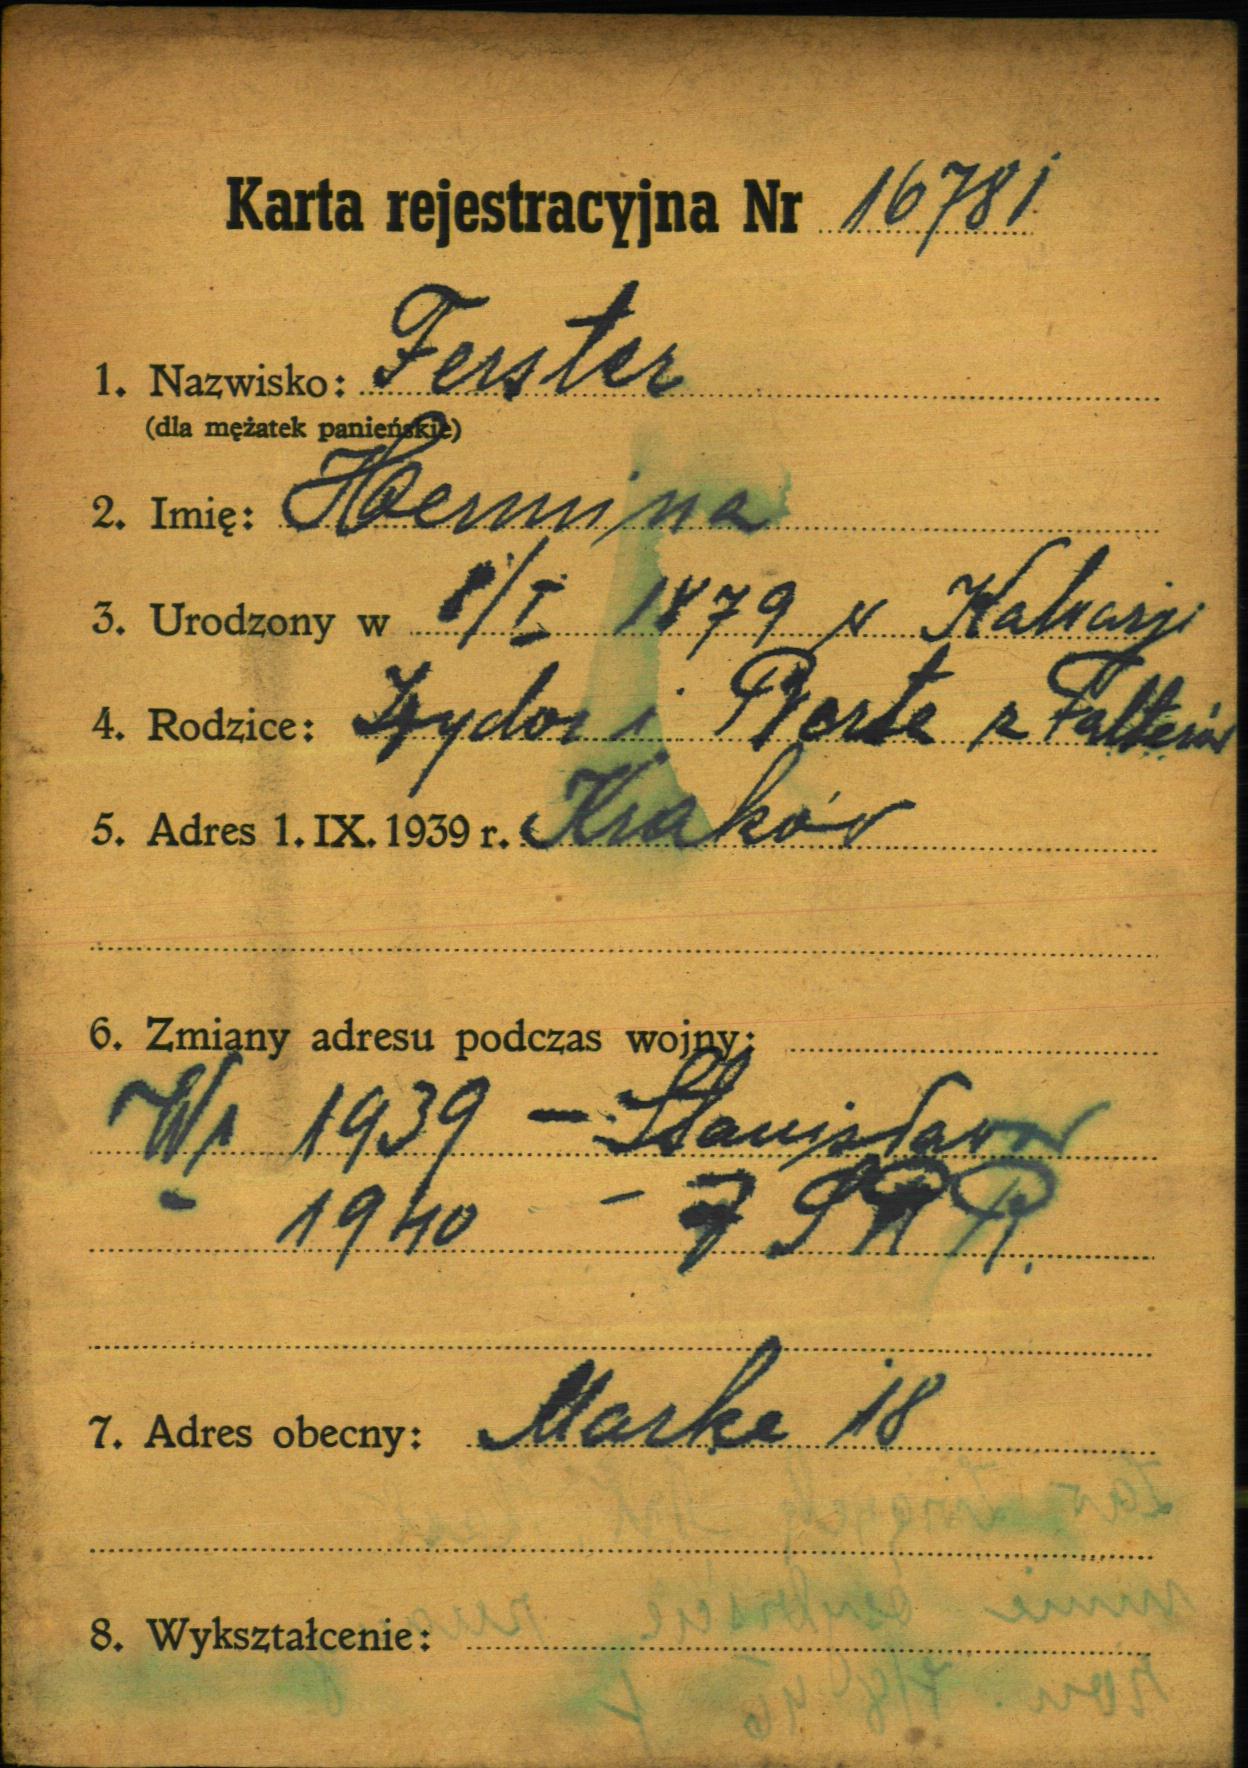 Karta rejestracyjna Nr 16781
1. Nazwisko: Ferster
(dla mężatek panieńskie)
2. Imię: Hermina
3. Urodzony w 8/I 1879 w Kalwarji
4. Rodzice: Izydor i Berta z Falterów
5. Adres 1. IX. 1939 r. Kraków
6. Zmiany adresu podczas wojny:
Wr 1939 - Stanisławów
- 1940 -
7. Adres obecny: 18
8. Wykształcenie: